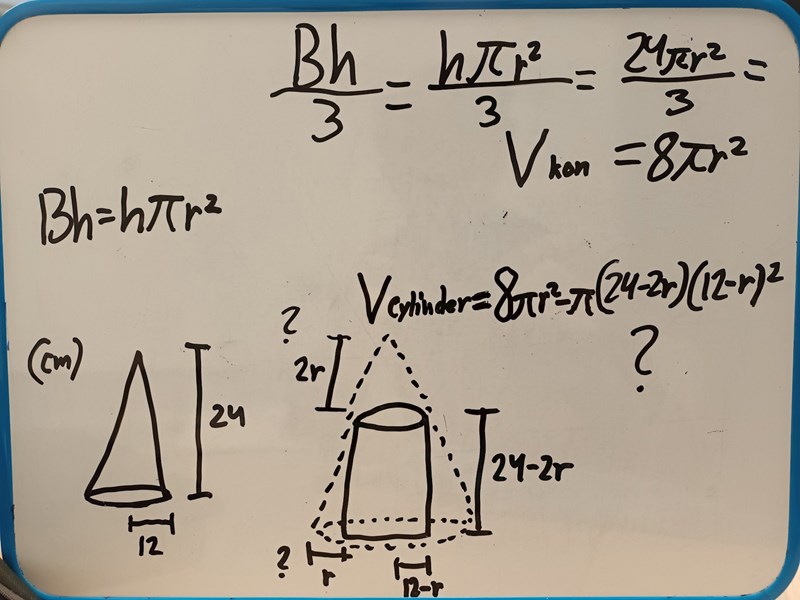 Bh/3 = hπr²/3 = 24πr²/3 =
V kon = 8πr²
Bh=hπr²
V cylinder = 8πr²-π(24-2r)(12-r)²
?
?
(cm)
2r
24
24-2r
12
?
r
12-r